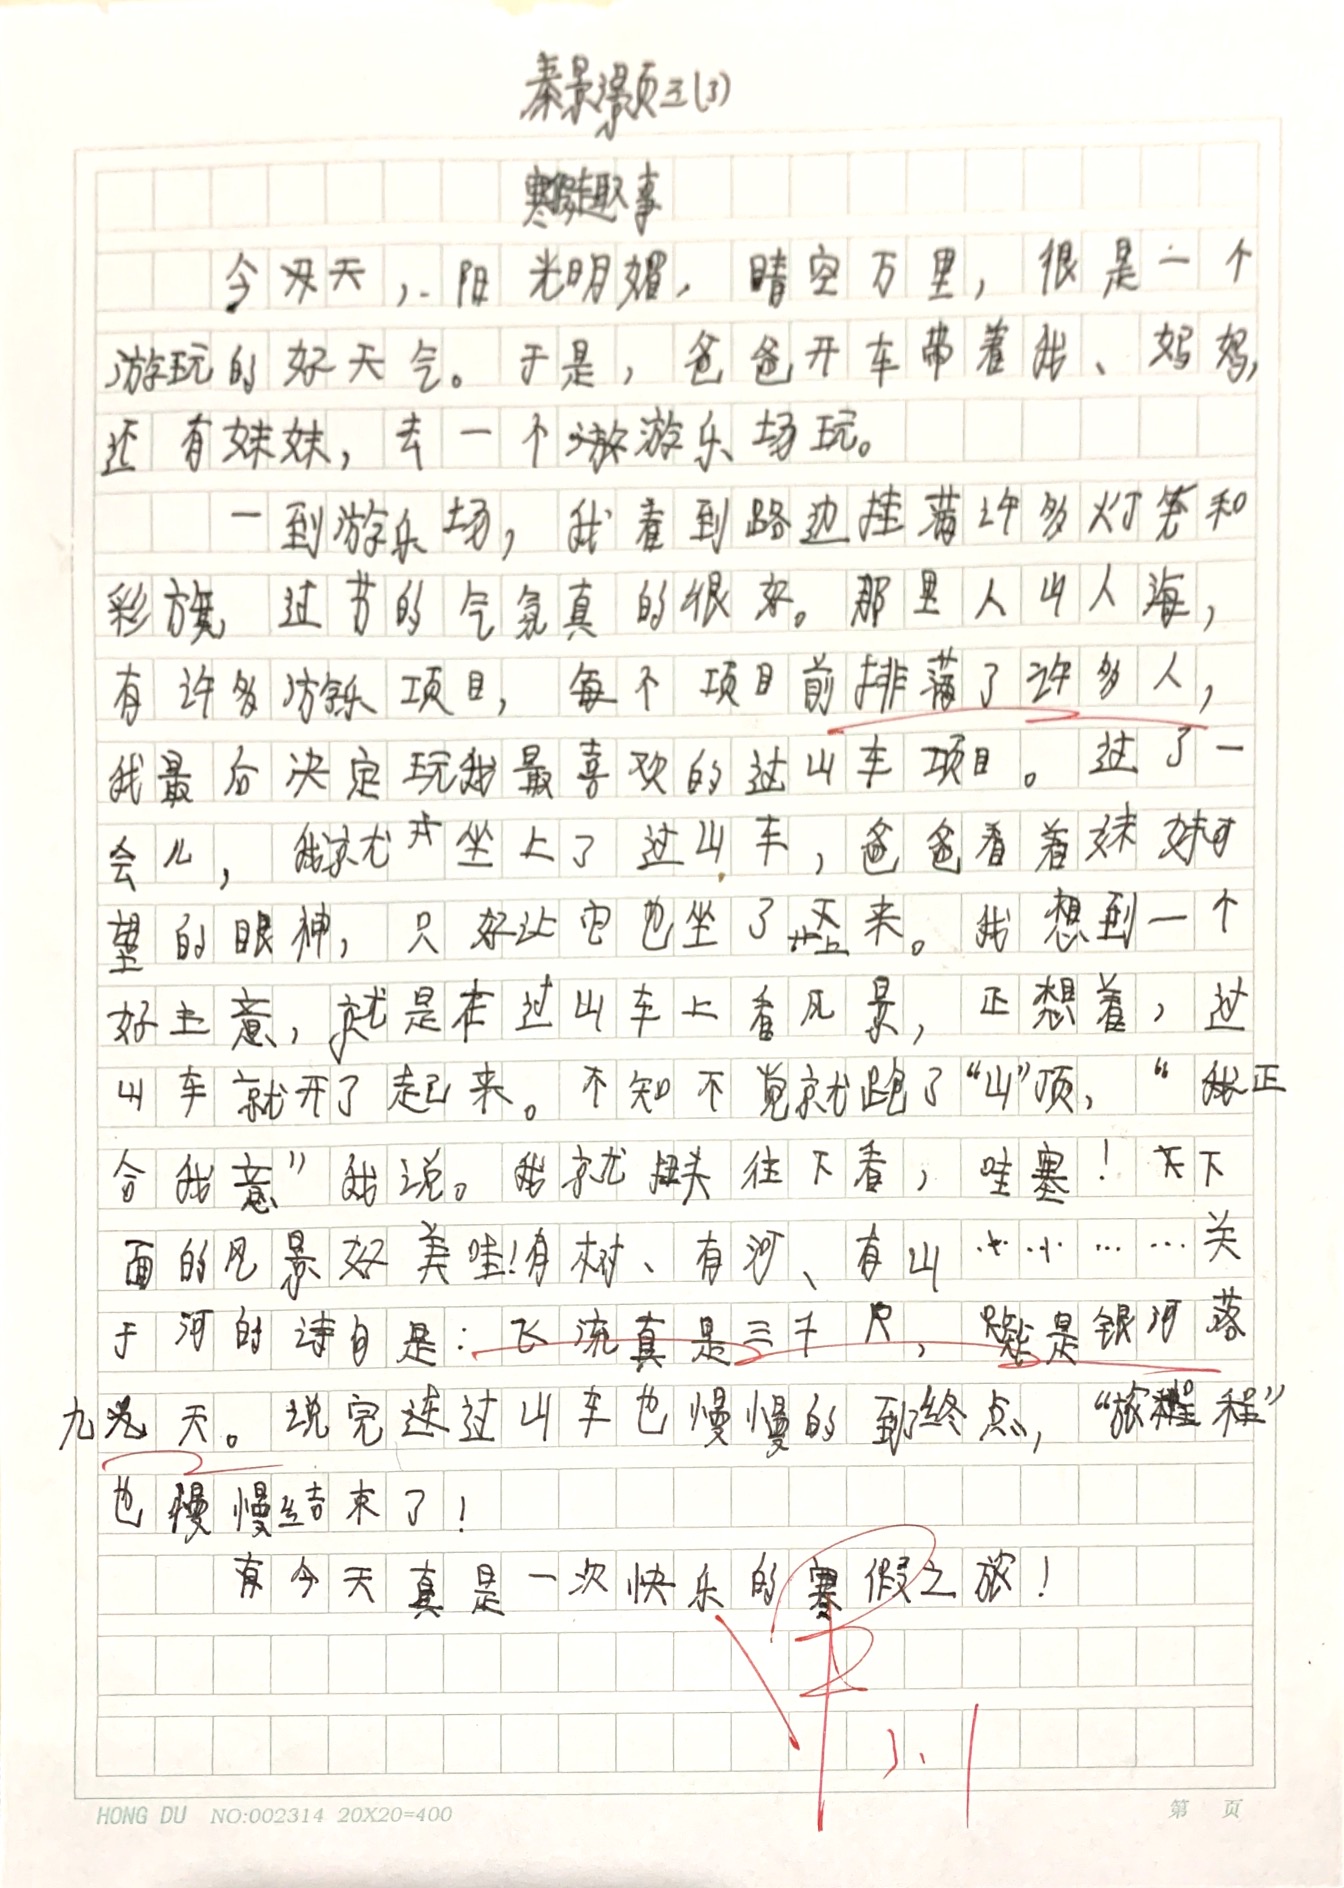 秦景灏三(3)
寒假趣事
今天,阳光明媚,晴空万里,很是一个
游玩的好天气。于是,爸爸开车带着我、妈妈,
还有妹妹,去一个游乐场玩。
一到游乐场,我看到路边挂满许多灯笼和
彩旗,过节的气氛真的很好。那里人山人海,
有许多游乐项目,每个项目前排满了许多人,
我最后决定玩我最喜欢的过山车项目。过了一
会儿,我就坐上了过山车,爸爸看着妹妹
望的眼神,只好让它也坐了上来。我想到一个
好主意,就是在过山车上看风景,正想着,过
山车就开了起来。不知不觉就跑了“山”顶,“正
合我意”我说。我就扭头往下看,哇塞!下
面的风景好美哇!有树、有河、有山…………关
于河的诗句是:飞流真是三千尺,疑是银河落
九天。说完连过山车也慢慢的到终点,“旅程”
也慢慢结束了!
今天真是一次快乐的寒假之旅!
3.1
HONG DU NO:002314 20X20=400
第 页